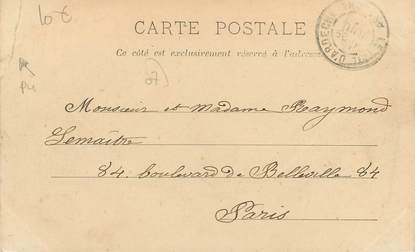 10€
CARTE POSTALE
Ce côté est exclusivement réservé à l'adresse
07
Pli
Monsieur et Madame Raymond
Lemaître
84. boulevard de Belleville 84
Paris